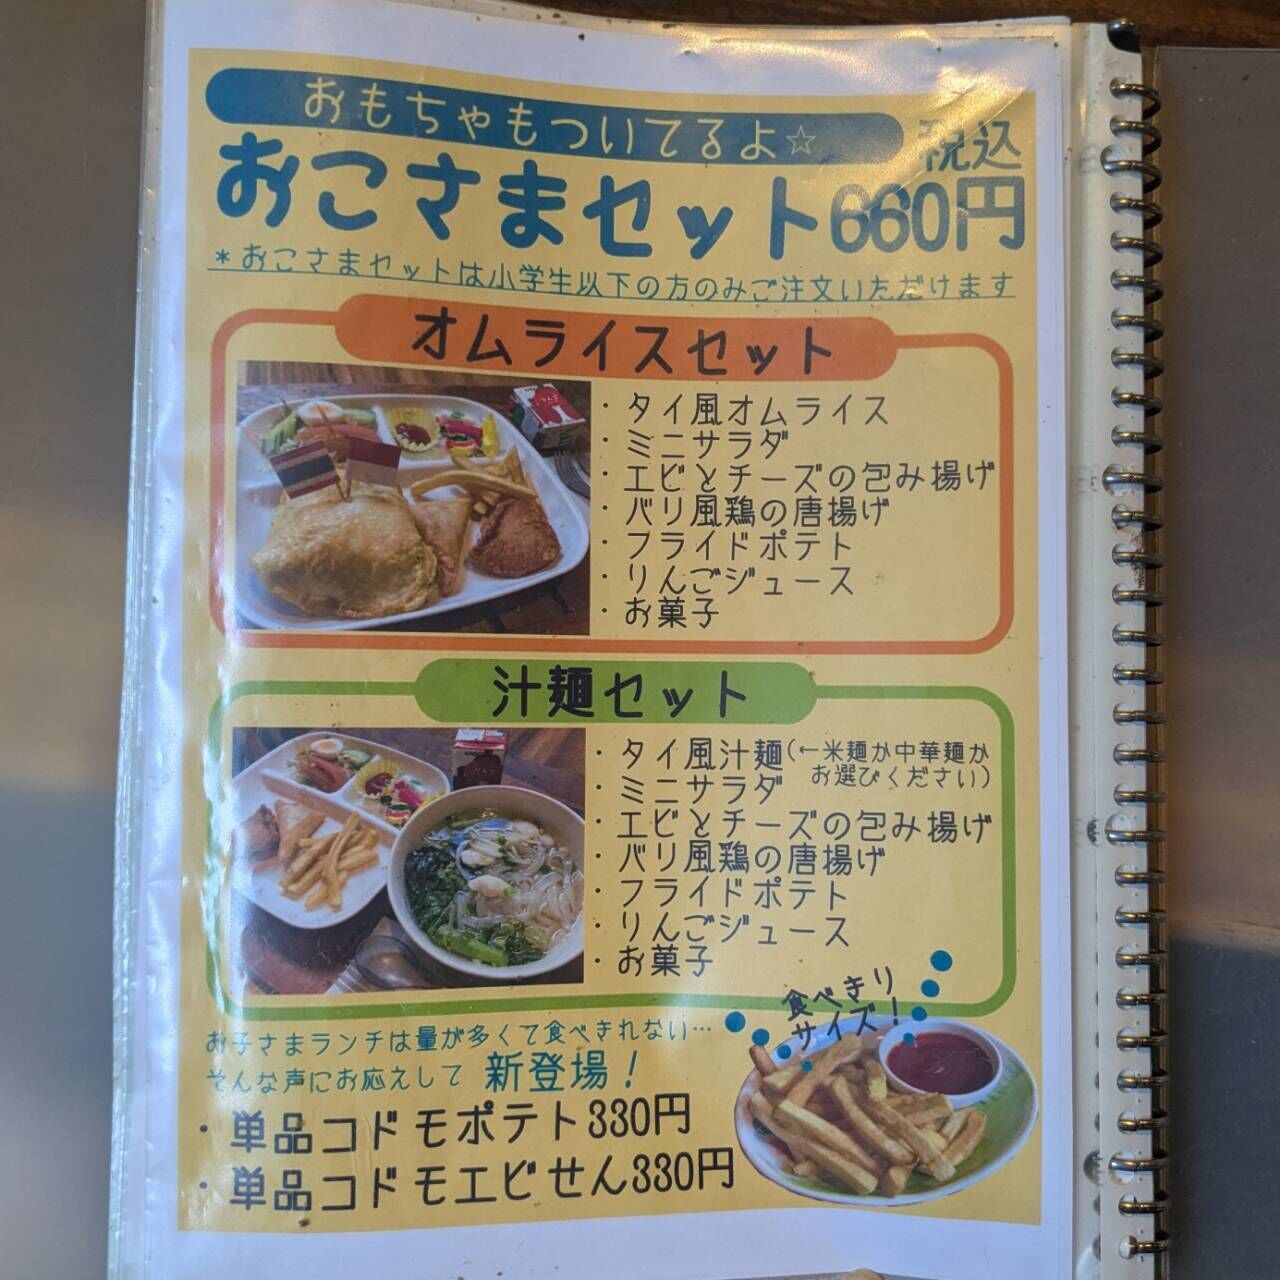 おもちゃもついてるよ☆
おこさまセット 税込660円
*おこさまセットは小学生以下の方のみご注文いただけます
オムライスセット
・タイ風オムライス
・ミニサラダ
・エビとチーズの包み揚げ
・バリ風鶏の唐揚げ
・フライドポテト
・りんごジュース
・お菓子
汁麺セット
・タイ風汁麺(←米麺か中華麺か
お選びください)
・ミニサラダ
・エビとチーズの包み揚げ
・バリ風鶏の唐揚げ
・フライドポテト
・りんごジュース
・お菓子
お子さまランチは量が多くて食べきれない…
そんな声にお応えして 新登場!
・単品コドモポテト330円
・単品コドモエビせん330円
食べきり
サイズ!